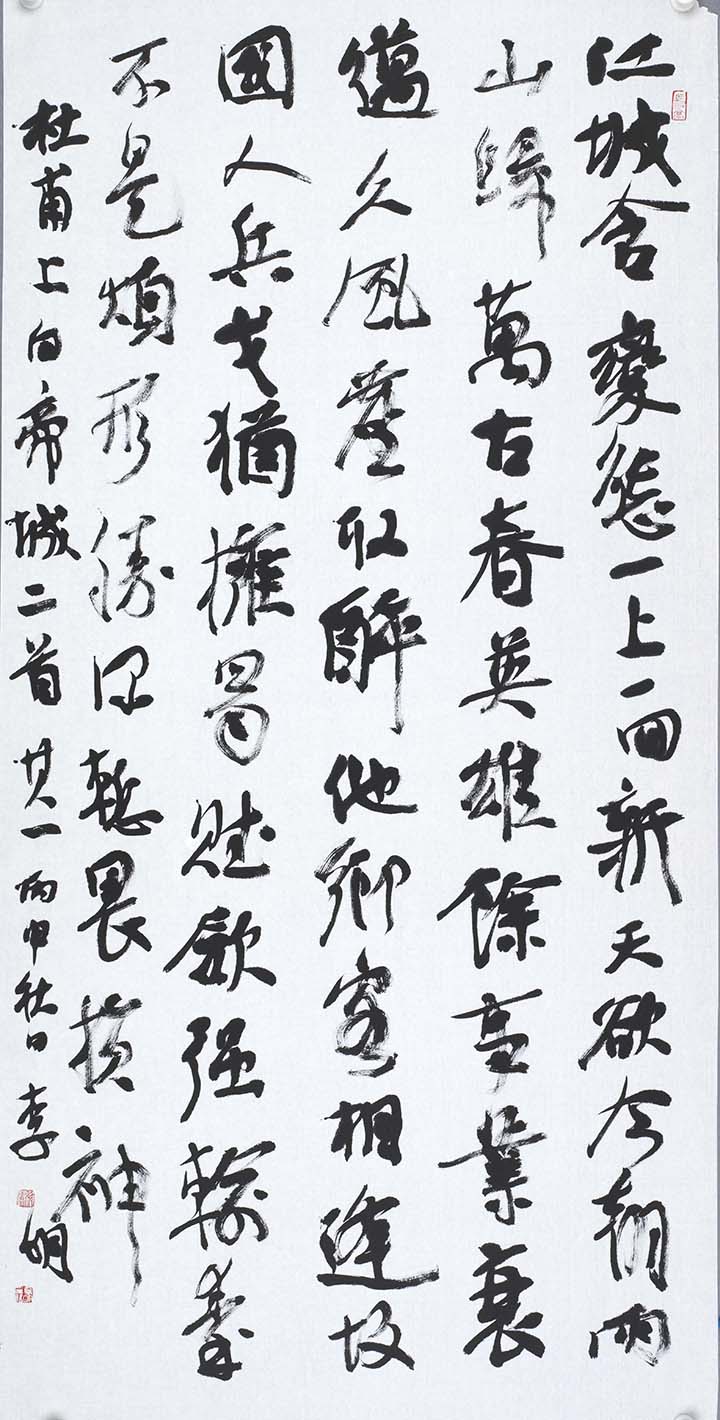 江城含變態一上一回新天欲今朝雨
山歸萬古春英雄餘事業衰
邁久風塵取醉他鄉客相逢故
國人兵戈猶擁蜀賦歛强輸秦
不是煩形勝深慙畏損神
杜甫上白帝城二首其一丙申秋日李明